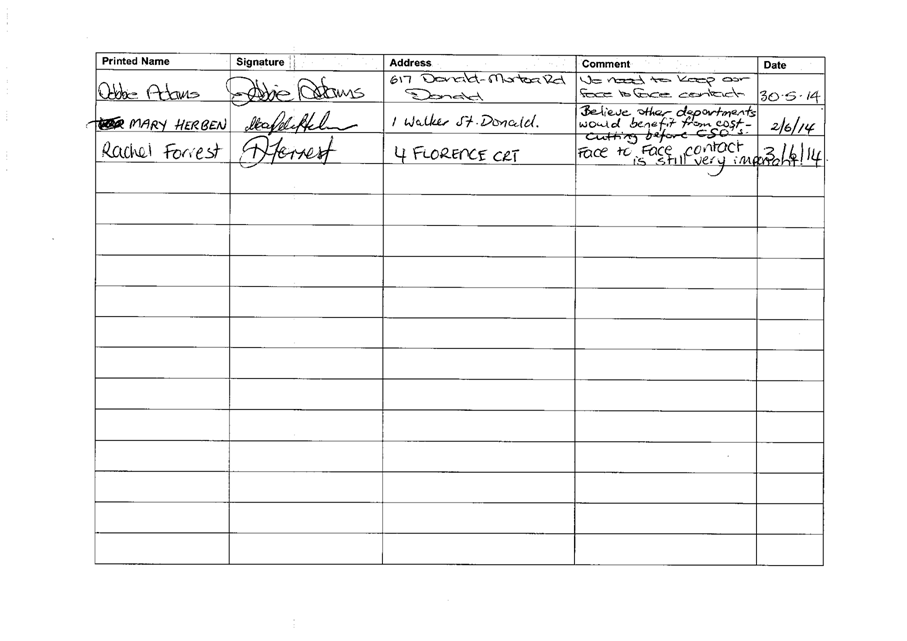 Printed Name Signature Address Comment Date
Debbie Adams Debbie Adams 617 Donald-Murtoa Rd Donald We need to keep our face to face contact 30.5.14
MARY HERBEN 1 Walker St. Donald. Believe other departments would benefit from cost-cutting before CSO's. 2/6/14
Rachel Forrest RForrest 4 FLORENCE CRT Face to Face contact is still very important! 3/6/14